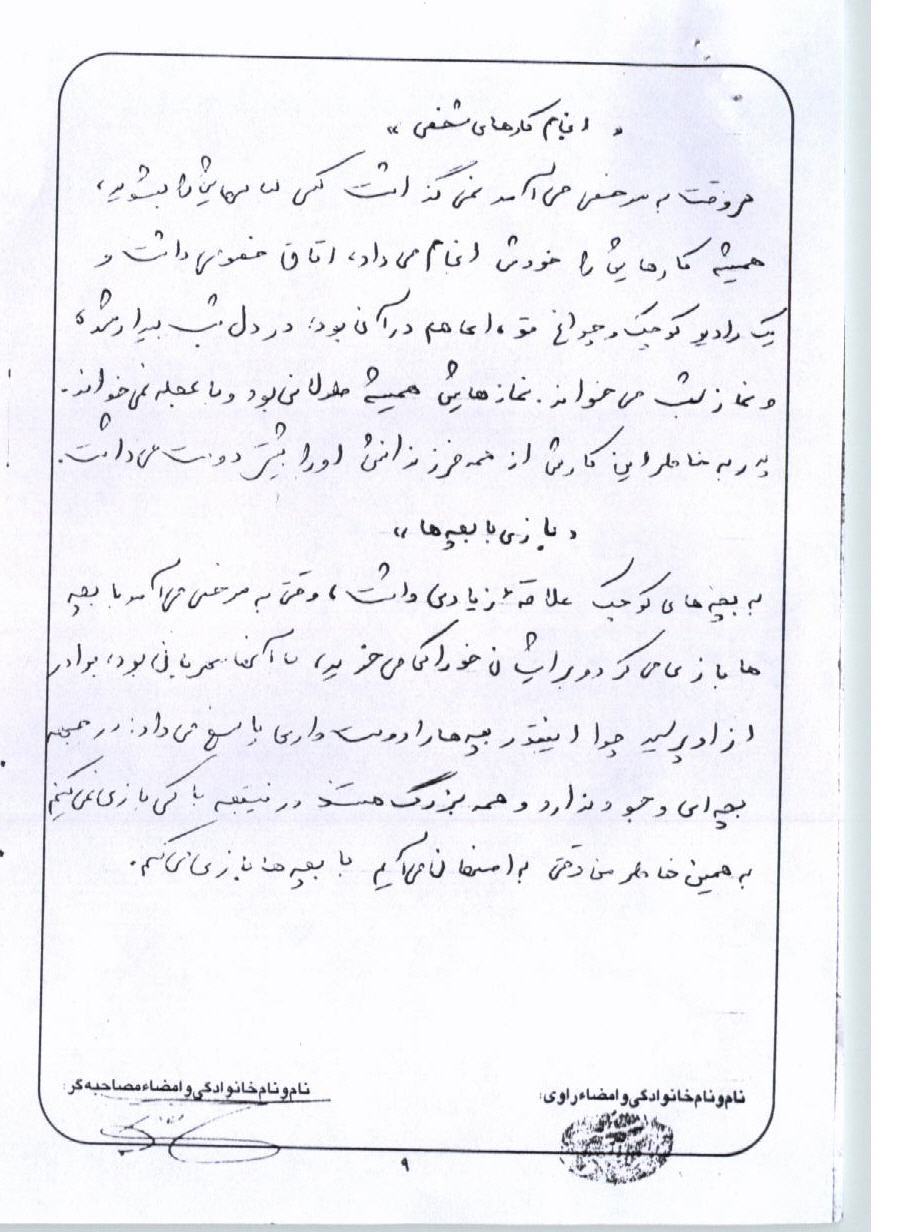 « انجام کارهای شخصی »
هر وقت به مرخصی می‌آمد نمی‌گذاشت کسی لباسهایش را بشوید،
همیشه کارهایش را خودش انجام می‌داد، اتاق خصوصی داشت و
یک رادیو کوچک و چراغ قوه، اما هم در آن بود، در دل شب بیدار می‌شد،
و نماز شب می‌خواند. نمازهایش همیشه طولانی بود و با عجله نمی‌خواند.
پدر به خاطر این کارش از همه فرزندانش او را بیشتر دوست می‌داشت.
« بازی با بچه‌ها »
به بچه‌های کوچک علاقهٔ زیادی داشت، وقتی به مرخصی می‌آمد با بچه
ها بازی می‌کرد و برایشان خوراکی می‌خرید، با آنها مهربان بود، برادر
از او پرسید چرا اینقدر بچه‌ها را دوست داری پاسخ می‌داد: در جبهه
بچه‌ای وجود ندارد و همه بزرگ هستند در نتیجه با کسی بازی نمی‌کنیم
به همین خاطر من وقتی به می‌آیم با بچه‌ها بازی می‌کنم.
نام و نام خانوادگی و امضاء راوی:
نام و نام خانوادگی و امضاء مصاحبه‌گر:
۹